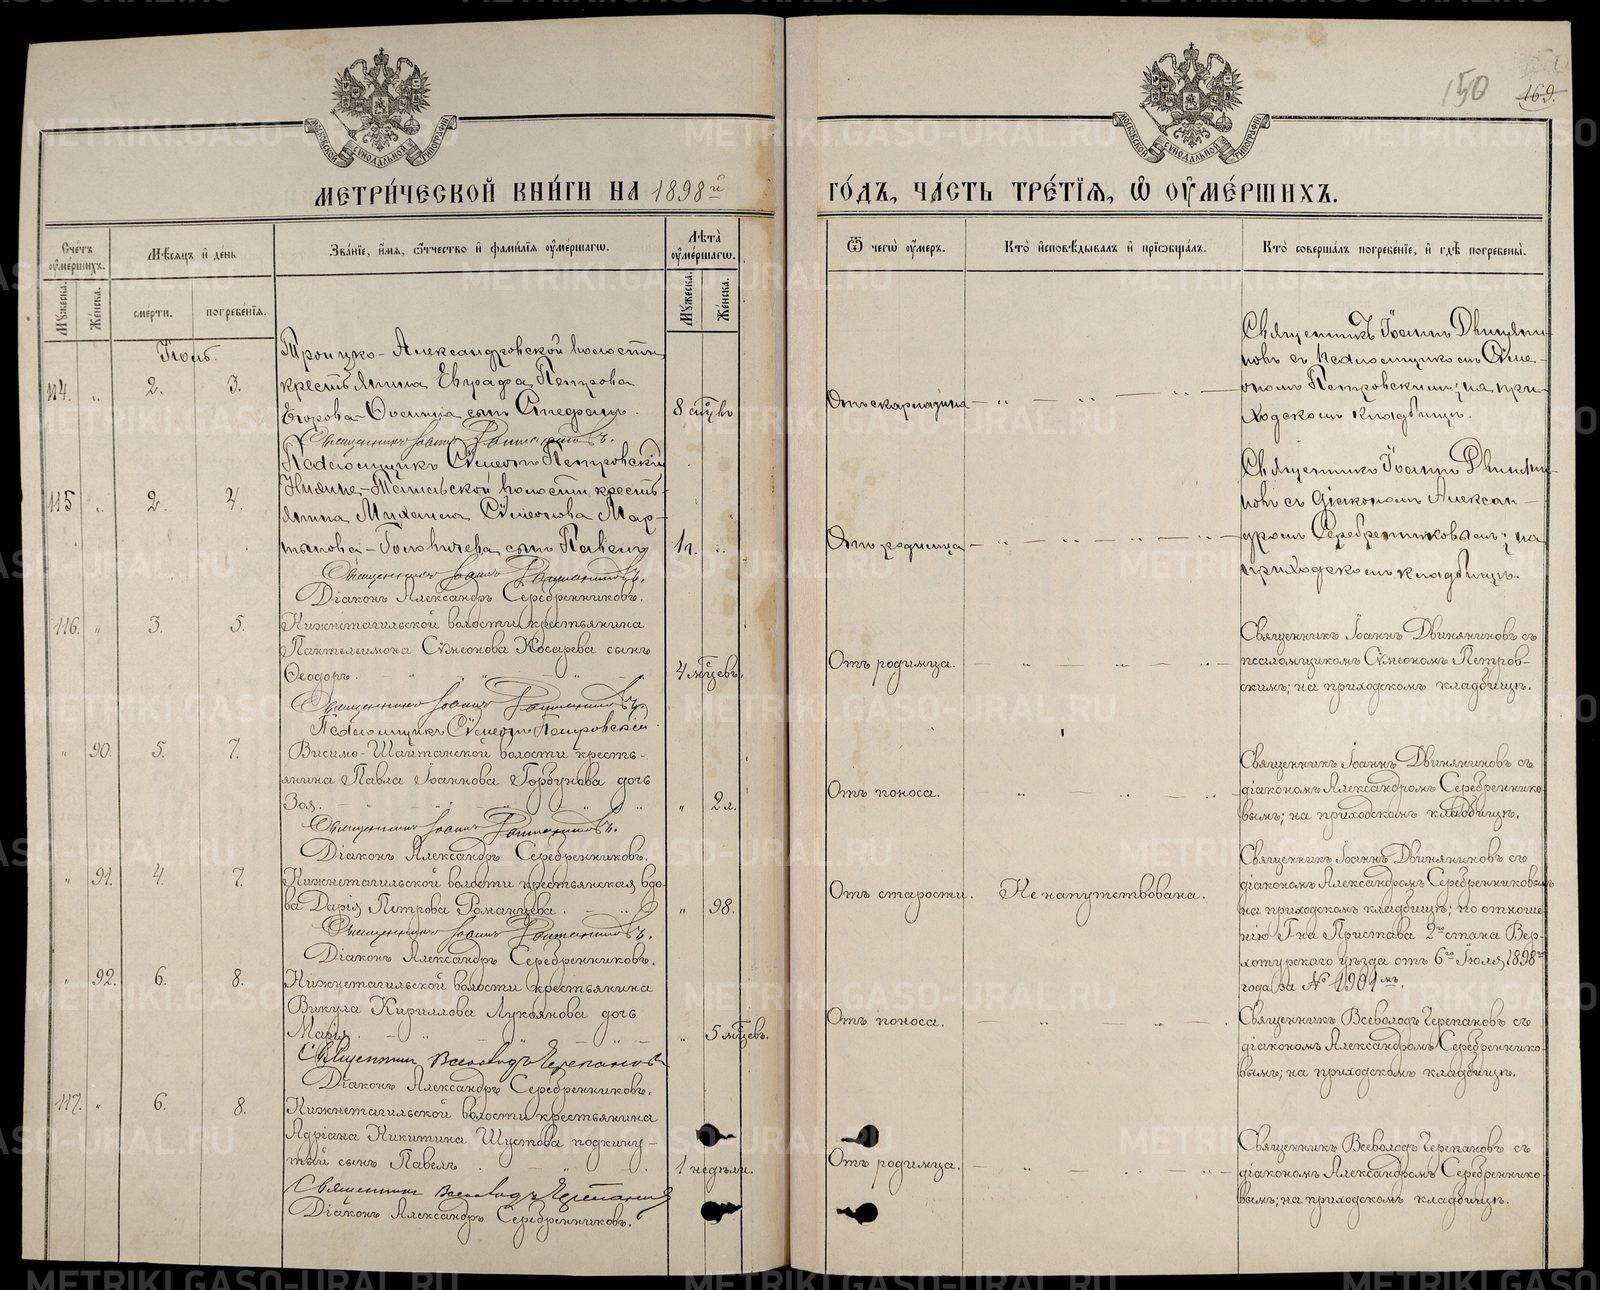 150
169.
МОСКОВСКОЙ СУНОДАЛЬНОЙ ТИПОГРАФІИ
МОСКОВСКОЙ СУНОДАЛЬНОЙ ТИПОГРАФІИ
МЕТРИ́ЧЕСКОЙ КНИ́ГИ НА 1898й
ГО́ДЪ, ЧА́СТЬ ТРЕ́ТІѦ, Ѡ ОУМЕ́РШИХЪ.
Сче́тъ оуме́ршихъ.
Мѣ́сяцъ и де́нь
Зва́ніе, и́мя, о́тчество и фами́лія оуме́ршагѡ.
Лѣ́та оуме́ршагѡ.
Ѿ чегѡ̀ оу́меръ.
Кто̀ исповѣ́дывалъ и пріѡбща́лъ.
Кто̀ соверша́лъ погребе́ніе, и гдѣ̀ погребены̀.
Му́жеска.
Же́нска.
сме́рти.
погребе́нія.
Му́жеска.
Же́нска.
Іюль.
114. " 2. 3.
Троицко-Александровской волости
крестьянина Евграфа Петрова
Егорова-Фомина сынъ Стефанъ. 8 мцвъ
Священникъ Іоаннъ
Псаломщикъ Сѵмеонъ Петровскій
Отъ скарлатина
Священникъ Іоаннъ Двиняни-
новъ съ псаломщикомъ Сѵме-
ономъ Петровскимъ; на при-
ходскомъ кладбищѣ.
115 " 2. 4.
Нижне-Тагильской волости кресть-
янина Михаила Сѵмеонова Мар-
тынова-Головичева сынъ Павелъ 1 г. "
Священникъ Іоаннъ
Діаконъ Александръ Серебренниковъ.
Отъ родимца
Священникъ Іоаннъ Двиняни-
новъ съ діакономъ Алексан-
дромъ Серебренниковымъ; на
приходскомъ кладбищѣ.
116. " 3. 5.
Нижнетагильской волости крестьянина
Пантелеимона Сѵмеонова Косарева сынъ
Ѳеодоръ. 4 мѣсцевъ.
Священникъ Іоаннъ
Псаломщикъ Сѵмеонъ Петровскій
Отъ родимца.
Священникъ Іоаннъ Двиняниновъ съ
псаломщикомъ Сѵмеономъ Петров-
скимъ; на приходскомъ кладбищѣ.
" 90. 5. 7.
Висимо-Шайтанской волости кресть-
янина Павла Іоаннова Горбунова дочь
Зоя. " 2 л.
Священникъ Іоаннъ
Діаконъ Александръ Серебренниковъ.
Отъ поноса.
Священникъ Іоаннъ Двиняниновъ съ
діакономъ Александромъ Серебреннико-
вымъ; на приходскомъ кладбищѣ.
" 91. 4. 7.
Нижнетагильской волости крестьянская вдо-
ва Дарія Петрова Романцева. " 98.
Священникъ Іоаннъ
Діаконъ Александръ Серебренниковъ.
Отъ старости. Не напутствована.
Священникъ Іоаннъ Двиняниновъ съ
діакономъ Александромъ Серебренниковымъ
на приходскомъ кладбищѣ; по отноше-
нію Г на Пристава 2го стана Вер-
хотурскаго уѣзда отъ 6го Іюля 1898го
года за № 1901мъ.
" 92. 6. 8.
Нижнетагильской волости крестьянина
Викула Кириллова Лукоянова дочь
Марія. " 5 мѣсцевъ.
Священникъ Всеволодъ Черепановъ
Діаконъ Александръ Серебренниковъ.
Отъ поноса.
Священникъ Всеволодъ Черепановъ съ
діакономъ Александромъ Серебреннико-
вымъ; на приходскомъ кладбищѣ.
117. " 6. 8.
Нижнетагильской волости крестьянина
Адріана Никитина Шустова подкину-
тый сынъ Павелъ. 1 недѣли.
Священникъ Всеволодъ Черепановъ
Діаконъ Александръ Серебренниковъ.
Отъ родимца.
Священникъ Всеволодъ Черепановъ съ
діакономъ Александромъ Серебреннико-
вымъ; на приходскомъ кладбищѣ.
METRIKI.GASO-URAL.RU